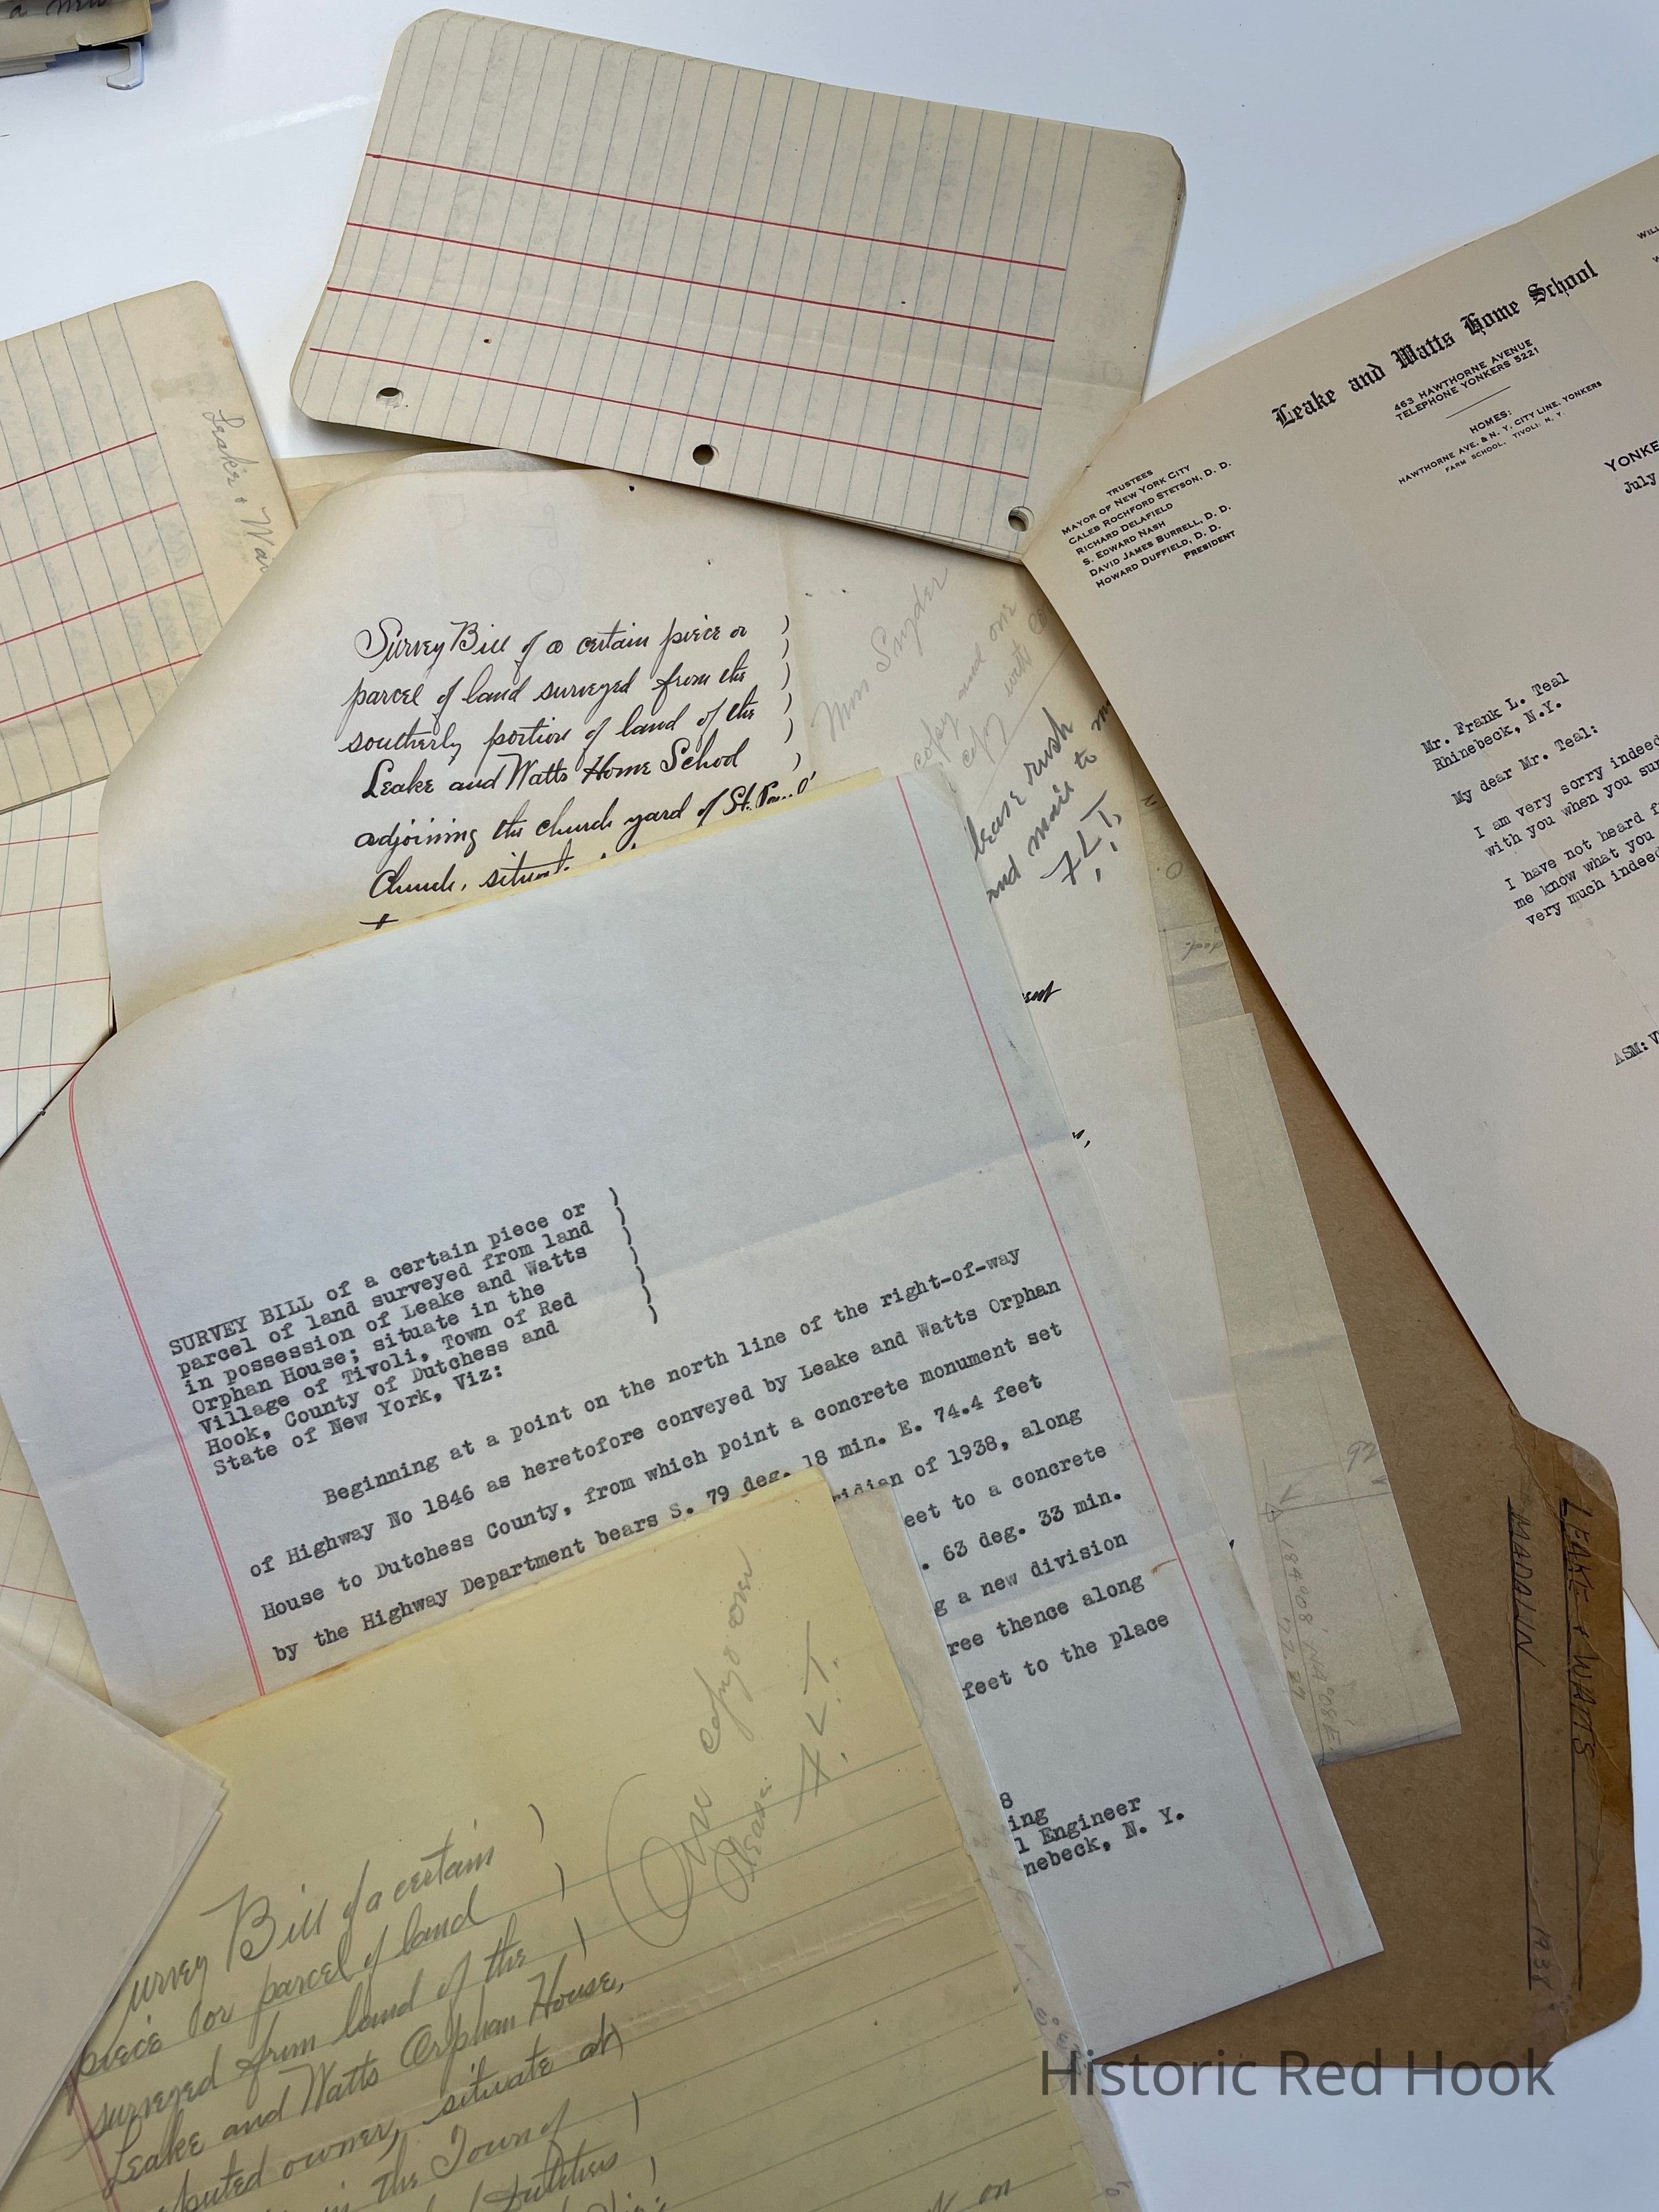 a new
Leake + Wat
Survey Bill of a certain piece or
parcel of land surveyed from the
southerly portion of land of the
Leake and Watts Home School
adjoining the church yard of St.
Church,
Miss Snyder
copy and one
copy with
rush
and mail to
F.L.T.
Leake and Watts Home School
463 HAWTHORNE AVENUE
TELEPHONE YONKERS 5221
HOMES:
HAWTHORNE AVE. & N. Y. CITY LINE, YONKERS
FARM SCHOOL, TIVOLI, N. Y.
TRUSTEES
MAYOR OF NEW YORK CITY
CALEB ROCHFORD STETSON, D. D.
RICHARD DELAFIELD
S. EDWARD NASH
DAVID JAMES BURRELL, D. D.
HOWARD DUFFIELD, D. D.
PRESIDENT
WILL
YONKE
July
Mr. Frank L. Teal
Rhinebeck, N.Y.
My dear Mr. Teal:
I am very sorry indeed
with you when you sur
I have not heard f
me know what you
very much indeed
ASM:V
SURVEY BILL of a certain piece or
parcel of land surveyed from land
in possession of Leake and Watts
Orphan House; situate in the
Village of Tivoli, Town of Red
Hook, County of Dutchess and
State of New York, Viz:
Beginning at a point on the north line of the right-of-way
of Highway No 1846 as heretofore conveyed by Leake and Watts Orphan
House to Dutchess County, from which point a concrete monument set
by the Highway Department bears S. 79 deg. 18 min. E. 74.4 feet
ridian of 1938, along
eet to a concrete
. 63 deg. 33 min.
g a new division
ree thence along
feet to the place
8
ing
l Engineer
nebeck, N. Y.
One copy
Please
F.L.T.
urvey Bill of a certain
piece or parcel of land
surveyed from land of the
Leake and Watts Orphan House,
puted owner, situate
in the Town of
on
LEAKE + WATTS
MADALIN 1938
Historic Red Hook